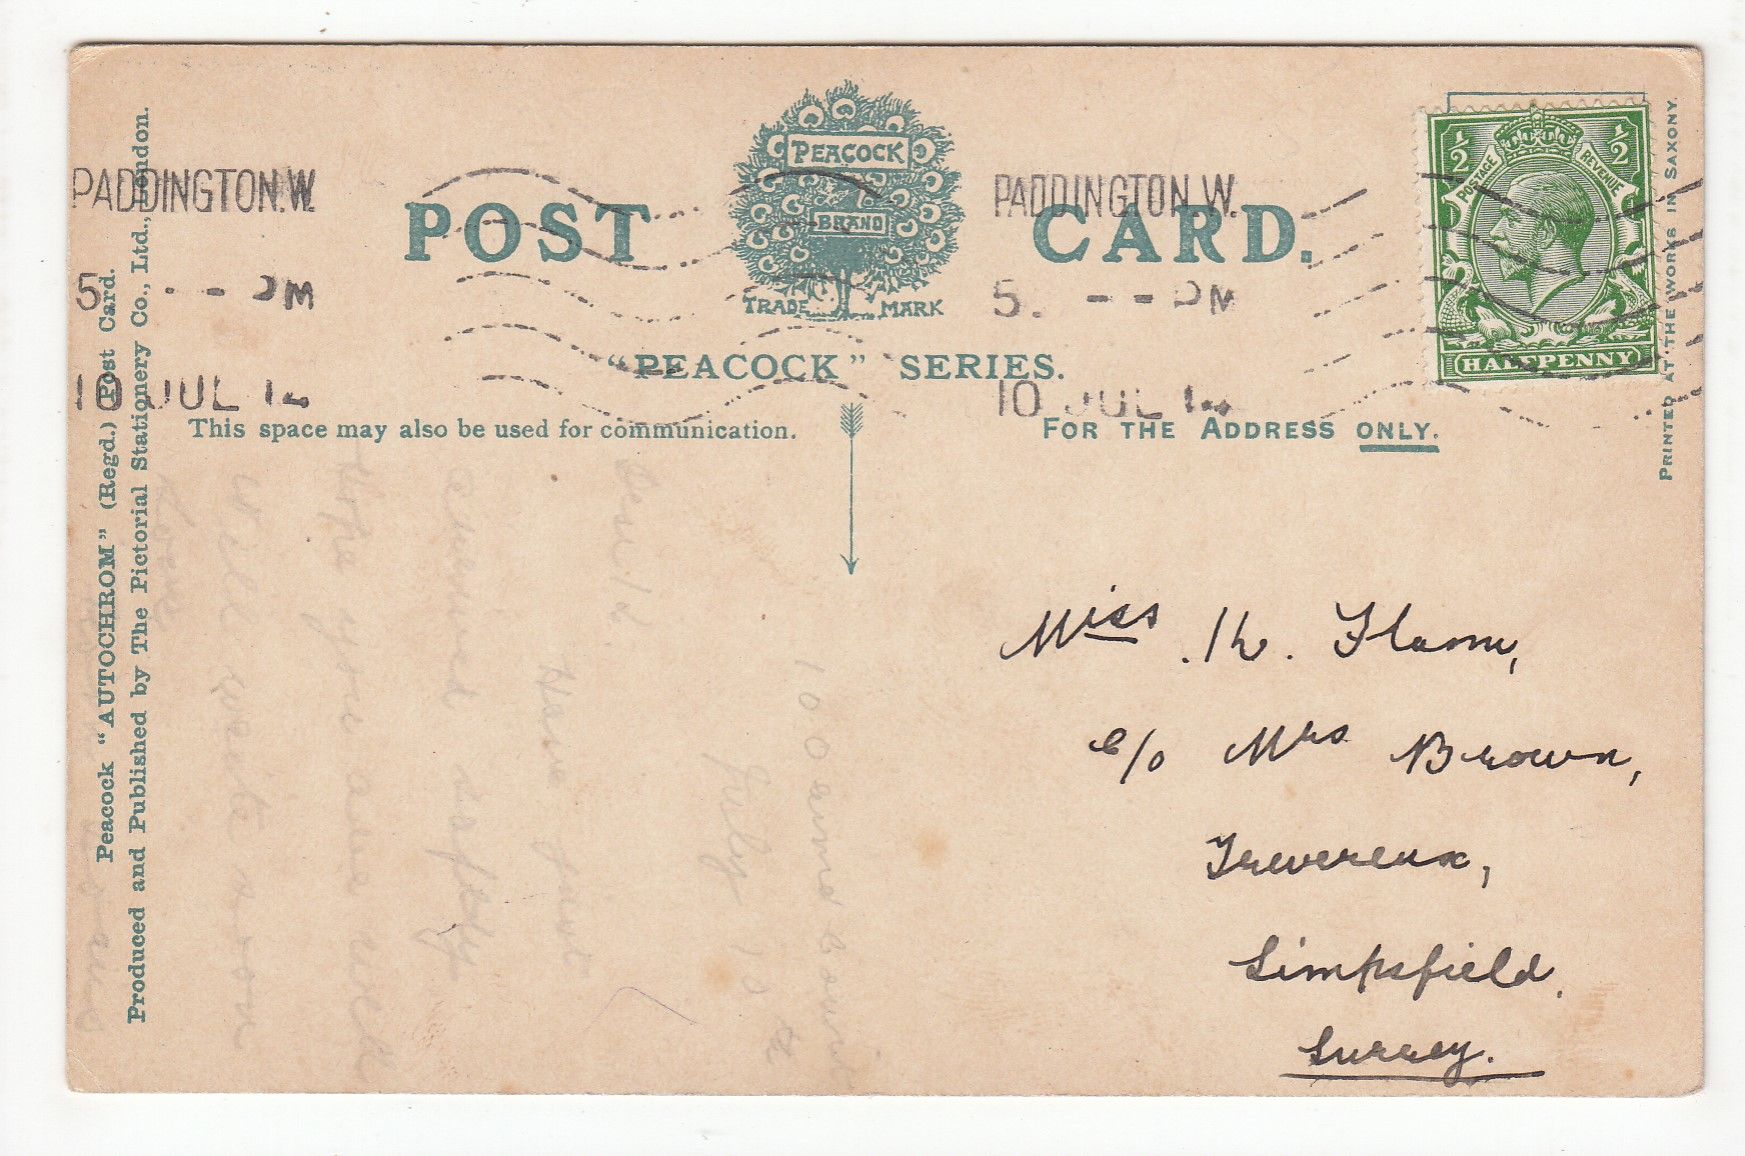 PEACOCK
BRAND
TRADE MARK
POST CARD.
"PEACOCK" SERIES.
This space may also be used for communication.
FOR THE ADDRESS ONLY.
PADDINGTON.W.
5. -- PM
10 JUL 14
PADDINGTON.W.
5. -- PM
10 JUL
POSTAGE REVENUE
½ ½
HALFPENNY
PRINTED AT THE WORKS IN SAXONY.
Peacock "AUTOCHROM" (Regd.) Post Card.
Produced and Published by The Pictorial Stationery Co., Ltd., London.
July 10
Have just
arrived safely
hope you are well
will write soon
Love
Miss K.
c/o Mrs Brown,
Trevereux,
Limpsfield.
Surrey.